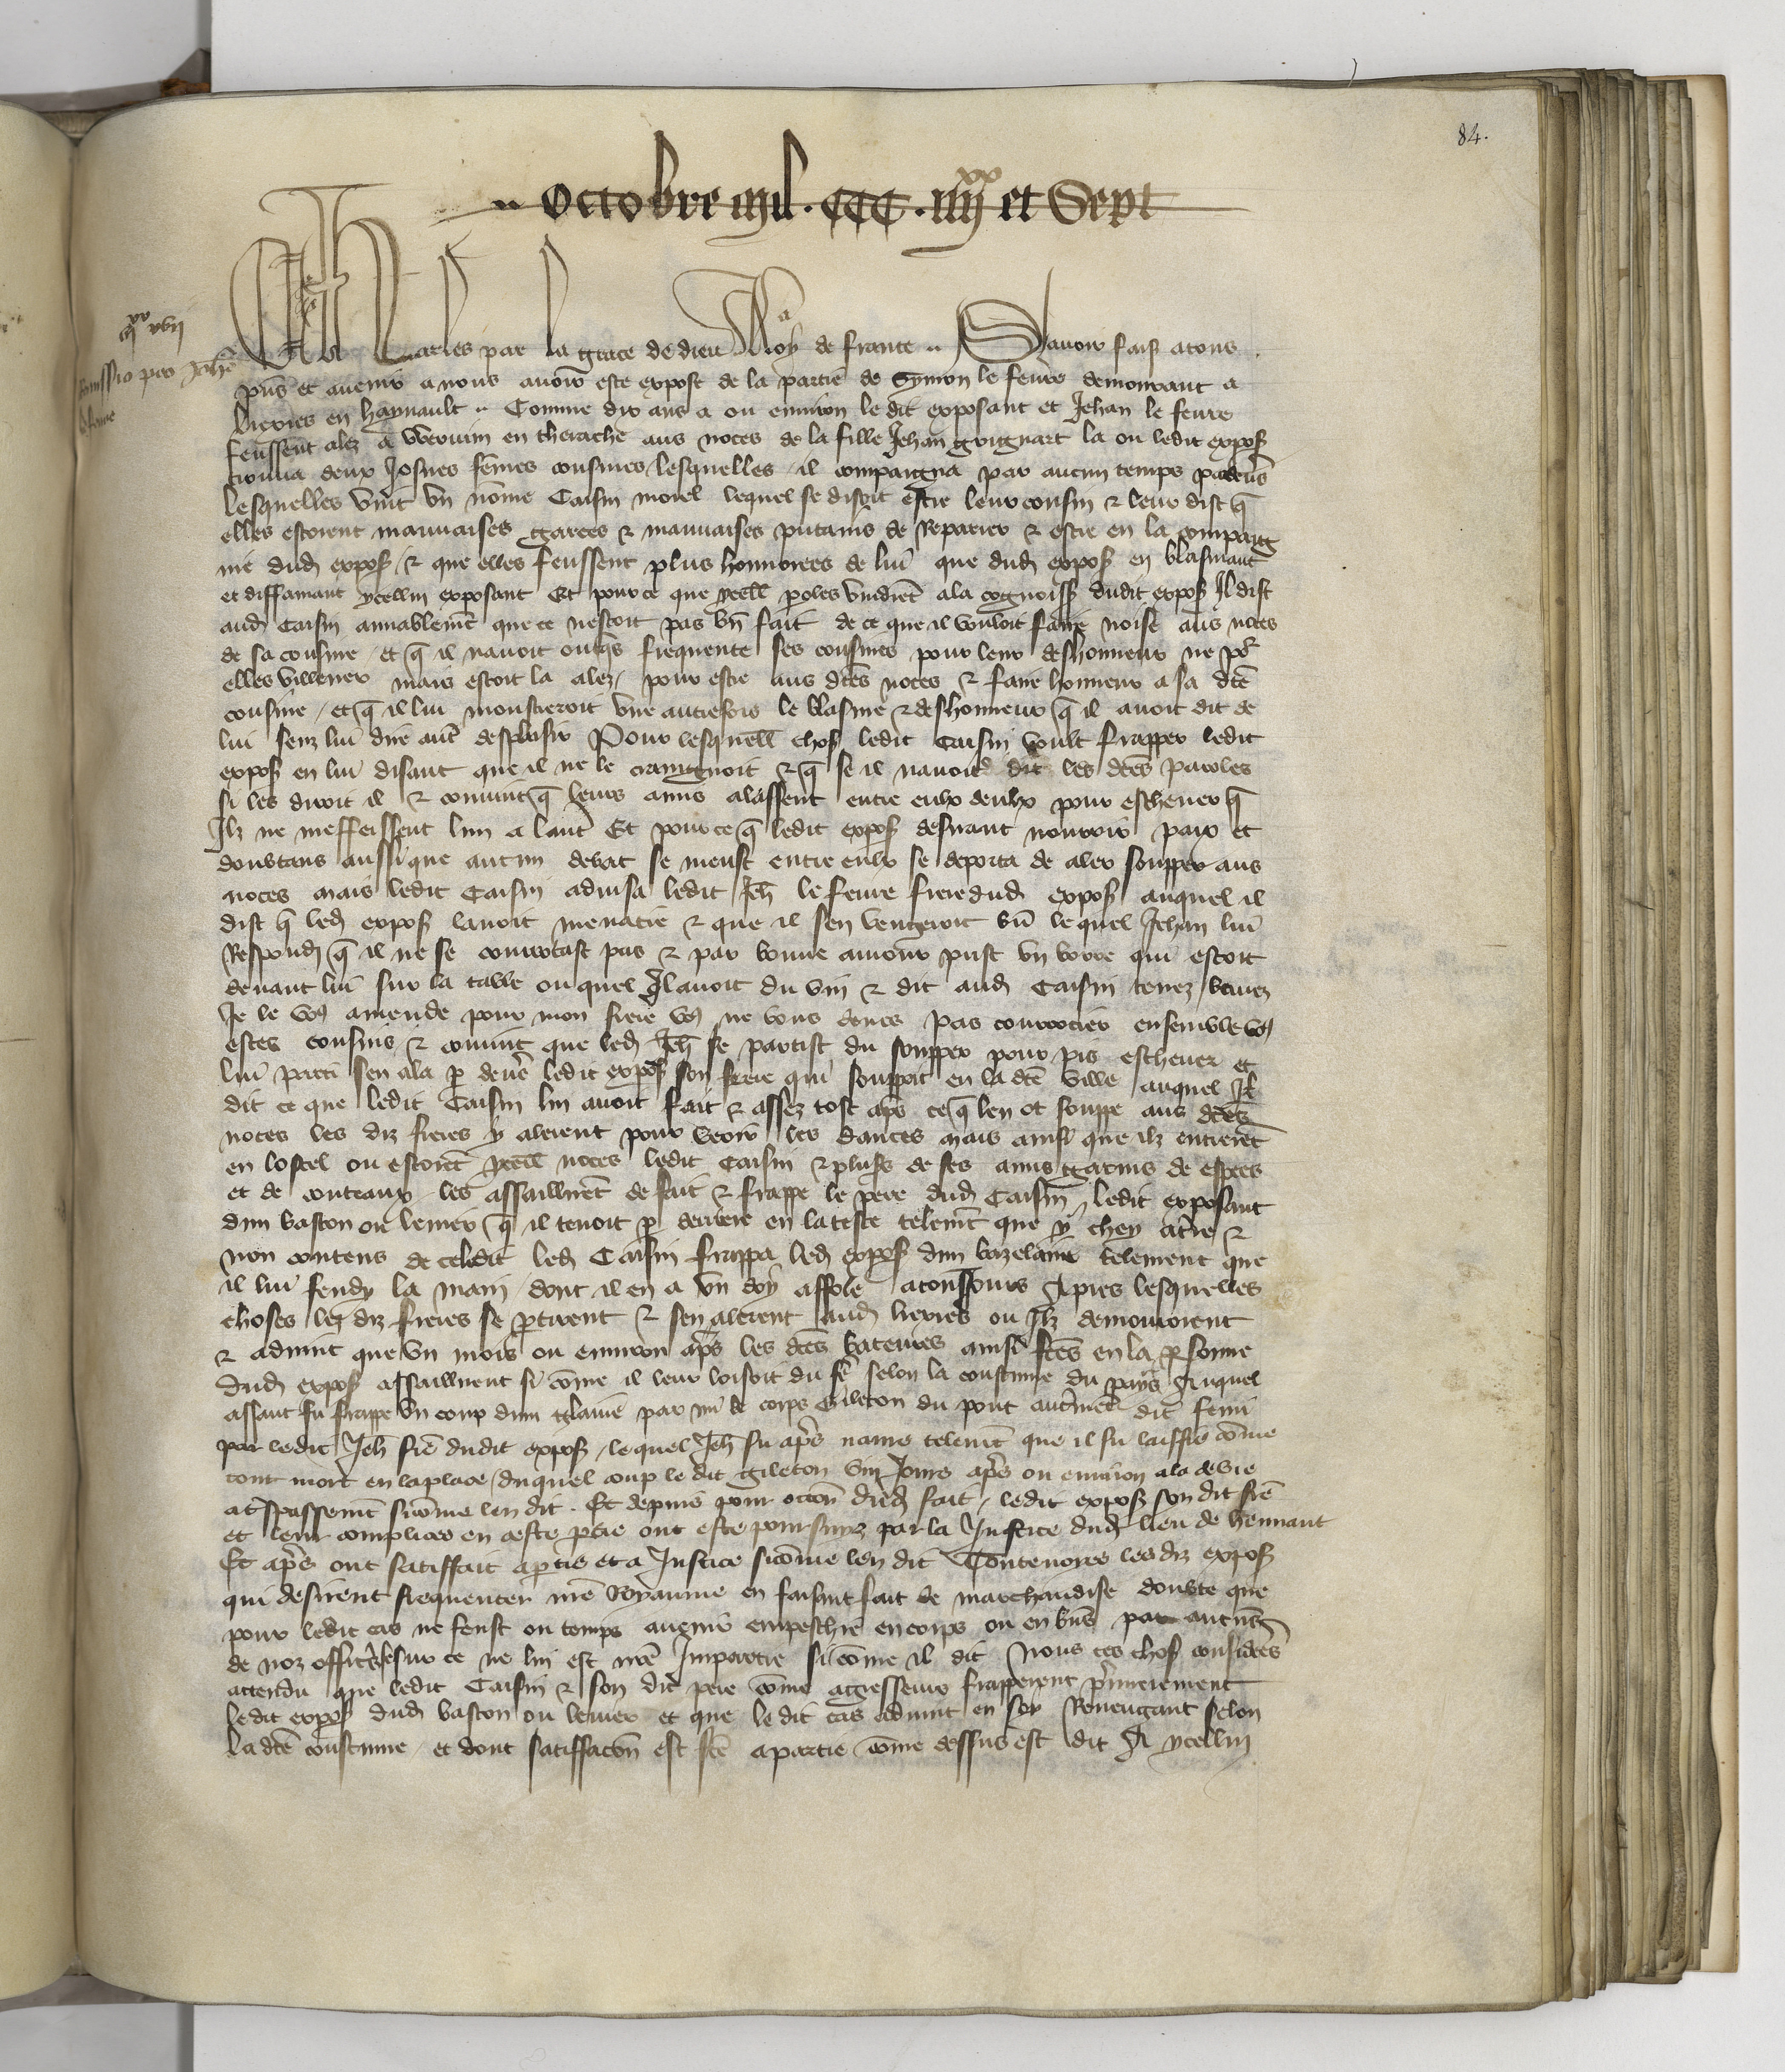 84.
Octobre mil . CCC . iiijxx et Sept
iiijxx xvij
Remissio pro Joh̄e
le fevre
Charles par la grace de dieu Roy de france .. Savoir faiz atous
p̄ns et avenir anous avoir este expose de la partie de Symon le fevre demourant a
lieries en haynault .. Comme dix ans a ou environ le dit exposant et Jehan le fevre
feussent alez a Vrevuin en therache aus noces de la fille Jehan grignart la ou ledit expos̄
trouva deux Josnes fēmes cousines lesquelles il compaigna par aucun temps
lesquelles vint vn nōme Caisin morel lequel se disoit estre leur cousin & leur dist q̄
elles estoient mauvaises garces & mauvaises putains de Reparier & estre en la compaig
nie dud̄ expos̄ / & que elles feussent plus honnorees de lui que dud̄ expos̄ en blasmant
et diffamant ycellui exposant Et pource que ycell̄ p̄oles vindrēt ala cognoiss̄ dudit expos̄ Il dist
aud̄ Caisin amiablemēt que ce nestoit pas bn̄ fait de ce que il vouloit faire noise aus noces
de sa cousine / et q̄ il navoit onq̄s frequente ses cousines pour leur deshonneur ne po᷒
elles villener mais estoit la alez / pour estre aus dc̄es noces & faire honneur a sa dc̄e
cousine / et q̄ il lui monstreroit vne autrefois le blasme & deshonneur q̄ il avoit dit de
lui senz lui dire aut̄ desplaisir Pour lesquell̄ chos̄ ledit Caisin voult frapper ledit
expos̄ en lui disant que il ne le craingnoit & q̄ se il navoit dit les dc̄es paroles
si les diroit il & convint q̄ leurs amis alassent entre eulx deulx pour eschever q̄
Ilz ne meffeissent lun a laut̄ Et pource q̄ ledit expos̄ desirant nourrir paix et
doubtans aussi que aucun debat se meust entre eulx se deporta de aler soupper aus
noces mais ledit Caisin advisa ledit Jeh̄ le fevre frere dud̄ expos̄ auquel il
dist q̄ led̄ expos̄ lavoit menacie & que il sen vengeroit bn̄ le quel Jehan lui
Respond̄ q̄ il ne se courroucast pas & par bonne amour prist vn voirre qui estoit
devant lui sur la table ouquel Il avoit du vin & dit aud̄ Caisin tenez / buvez
Je le vo᷒ amende pour mon frere vo᷒ ne vous devez pas courroucier ensemble vo᷒
estes cousins & convint que led̄ Jeh̄ se partist du soupper pour pis eschever et
lui parti sen ala p̄ devers ledit expos̄ son frere qui souppoit en la dc̄e ville auquel Il
dit ce que ledit Caisin lui avoit fait & assez tost ap̄s ce q̄ len ot souppe aus dc̄es
noces les diz freres y alerent pour veoir les dances mais ainsi que ilz entrerēt
en lostel ou estoiēt ycell̄ noces ledit Caisin & plus᷒s de ses amis garnis de espees
et de couteaux / les assaillirēt de fait & frappe le pere dud̄ Caisin / ledit exposant
dun baston ou levier q̄ il tenoit p̄ derriere en la teste telemēt que y chey at̄re &
non contens de ce ledit led̄ Caisin frappa led̄ expos̄ dun bazelaire telement que
il lui fendy la main / dont il en a vn doy affole atousjours Apres lesquelles
choses les diz freres se p̄tirent & sen alerent aud̄ lieries ou Ilz demouroient
& advint que vn mois ou environ ap̄s les dc̄es bateures ainsi fc̄es en la p̄sonne
dud̄ expos̄ assaillirent si cōme il leur loisoit du fē selon la coustume du pays Auquel
assaut fu frappe vn coup dun glaive par mi le corps Gileton du pont autremēt dit
par ledit Jeh̄ frē dudit expos̄ / lequel Jeh̄ fu ap̄s navre telemēt que il fu laissie cōme
tout mort en laplace / duquel coup le dit gileton viij Jours ap̄s ou environ ala de vie
at̄spassemēt sicōme len dit . Et depuis pour occōn dud̄ fait / ledit expos̄ son dit frē
et leur complices en ceste p̄tie ont este poursuiz par la Justice dud̄ lieu de henaut
Et ap̄s ont satiffait ap̄tie et a Justice sicōme len dit Toutevoies les diz expos̄
qui desirent frequenter nr̄e Royaume en faisant fait de marchandise doubte que
pour ledit cas ne feust ou temps avenir empeschie en corps ou en biēs par aucuns
de noz officiers se sur ce ne lui est nr̄e Impartie si cōme il dit Nous ces chos̄ considerēs
attendu que ledit Caisin & son dit pere cōme agresseurs frapperent p̄mierement
ledit expos̄ dud̄ baston ou levier et que le dit cas advint en soy Revengant selon
la dc̄e coustume / et dont satiffacōn est fc̄e apartie cōme dessus est dit A ycellui